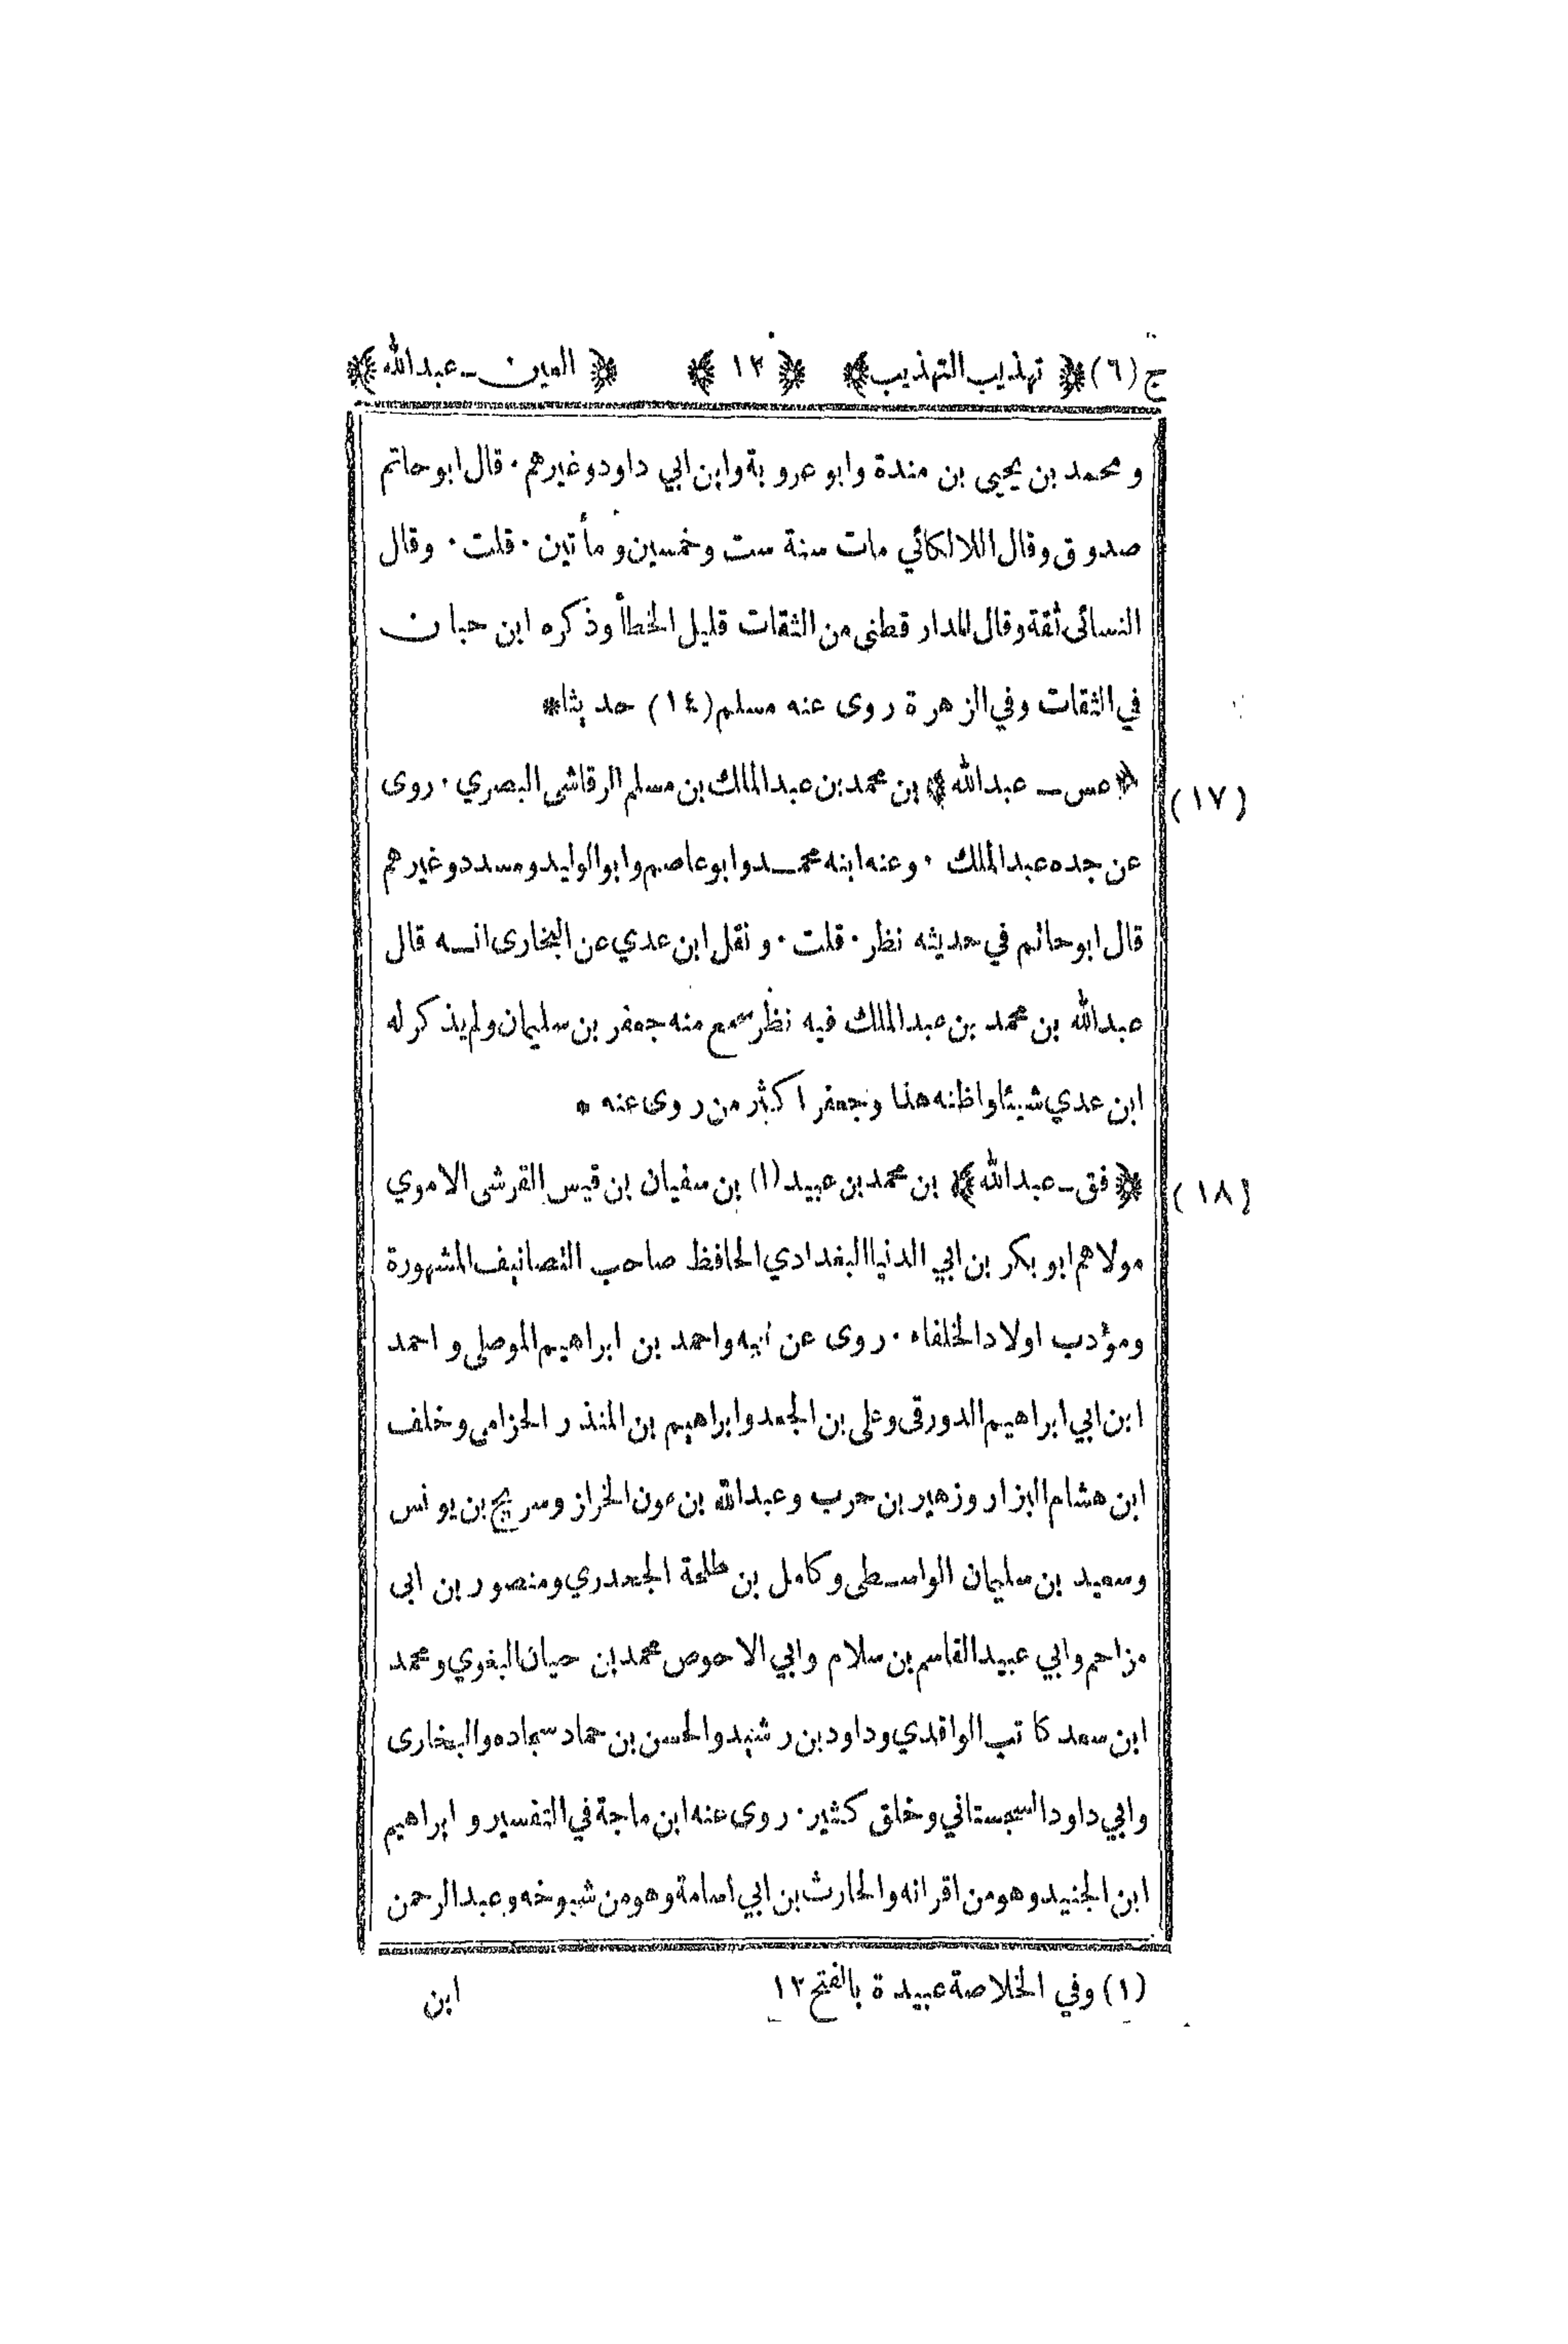 ج (٦) ﴿ تهذيب التهذيب ﴾ ﴿ ١٢ ﴾ ﴿ العين - عبدالله ﴾
و محمد بن يحيى بن مندة وابو عروبة وابن ابي داود وغيرهم . قال ابو حاتم
صدوق وقال اللالكائي مات سنة ست وخمسين و مأتين . قلت . وقال
النسائى ثقة وقال الدار قطنى من الثقات قليل الخطأ وذكره ابن حبان
في الثقات وفي الزهرة روى عنه مسلم (١٤) حديثا *
(١٧) ﴿ عس - عبدالله ﴾ بن محمد بن عبدالملك بن مسلم الرقاشى البصري . روى
عن جده عبدالملك . وعنه ابنه محمد وابو عاصم وابو الوليد ومسدد وغيرهم
قال ابو حاتم في حديثه نظر . قلت . ونقل ابن عدي عن البخارى انه قال
عبدالله بن محمد بن عبدالملك فيه نظر سمع منه جعفر بن سليمان ولم يذكر له
ابن عدي شيئا واظنه هذا وجعفر اكثر من روى عنه *
(١٨) ﴿ فق - عبدالله ﴾ بن محمد بن عبيد (١) بن سفيان بن قيس القرشى الاموي
مولاهم ابو بكر بن ابي الدنيا البغدادي الحافظ صاحب التصانيف المشهورة
ومؤدب اولاد الخلفاء . روى عن ابيه واحمد بن ابراهيم الموصلى و احمد
ابن ابي ابراهيم الدورقى وعلى بن الجعد وابراهيم بن المنذر الحزامى وخلف
ابن هشام البزار وزهير بن حرب وعبدالله بن عون الخراز وسريج بن يونس
وسعيد بن سليمان الواسطى وكامل بن طلحة الجحدري ومنصور بن ابى
مزاحم وابي عبيد القاسم بن سلام وابي الاحوص محمد بن حيان البغوي ومحمد
ابن سعد كاتب الواقدي وداود بن رشيد والحسن بن حماد سجاده والبخارى
وابي داود السجستاني وخلق كثير . روى عنه ابن ماجة في التفسير و ابراهيم
ابن الجنيد وهو من اقرانه والحارث بن ابي اسامة وهو من شيوخه وعبد الرحمن
(١) وفي الخلاصة عبيدة بالفتح ١٢
ابن